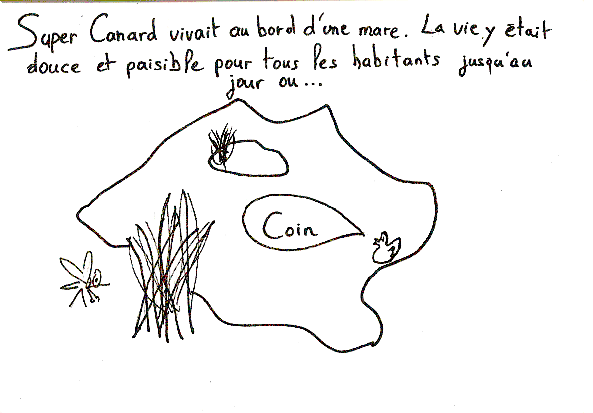 Super Canard vivait au bord d'une mare. La vie y était
douce et paisible pour tous les habitants jusqu'au
jour ou...
Coin